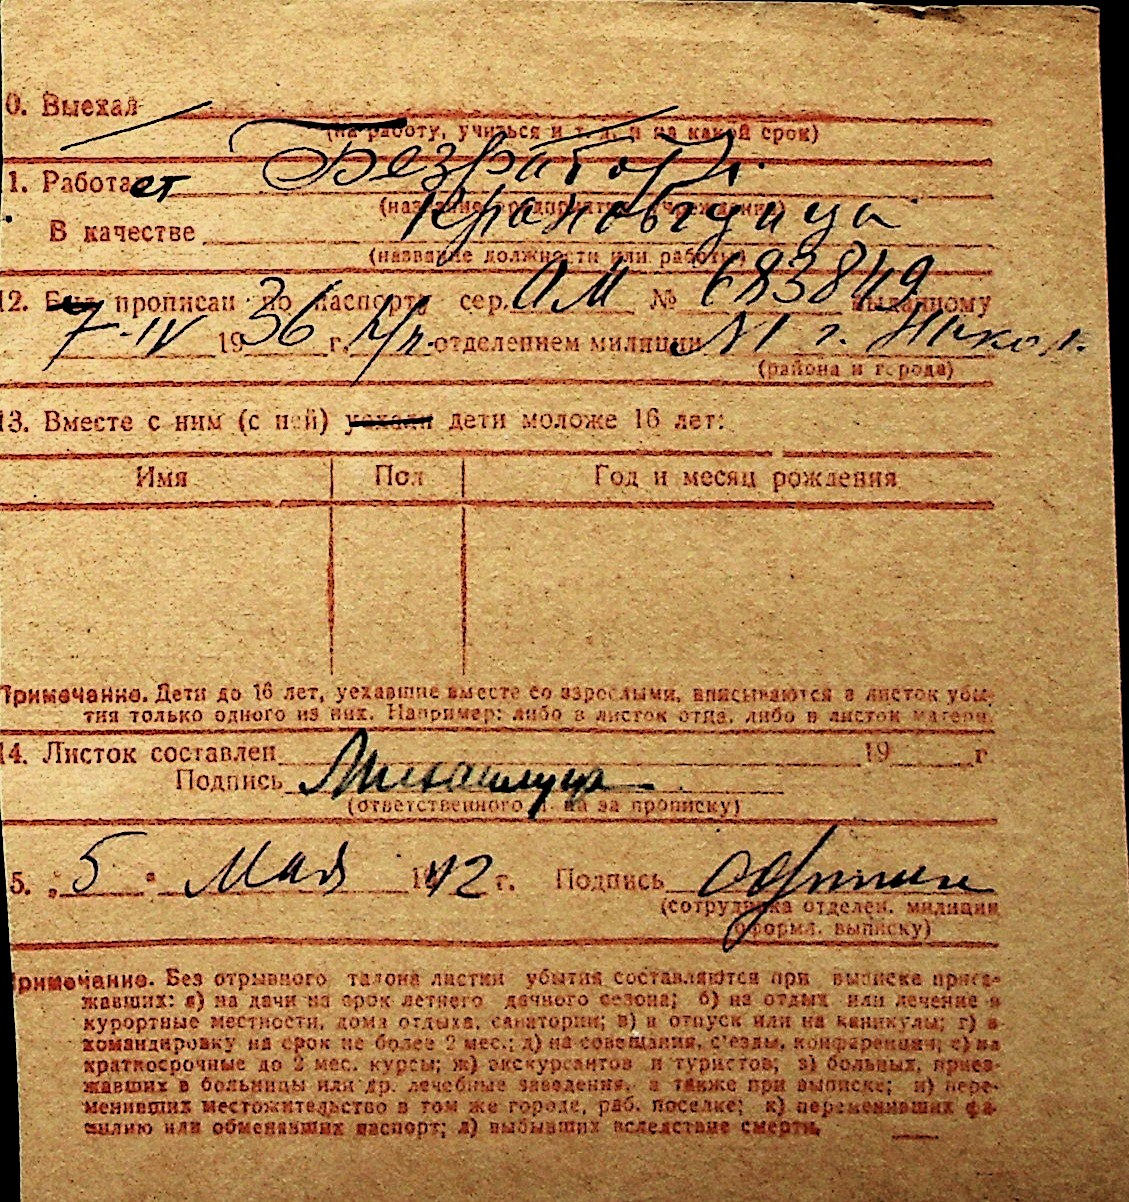 0. Выехал
(на работу, учиться и т. д. и на какой срок)
1. Работает Безработн.
(название предприятия, учреждения)
В качестве Крановщица
(название должности или работы)
12. Был прописан по паспорту сер. № 683849 выданному
7-IV 1936 г. отделением милиции №1 г. Никол.
(района и города)
13. Вместе с ним (с ней) уехали дети моложе 16 лет:
Имя Пол Год и месяц рождения
Примечание. Дети до 16 лет, уехавшие вместе со взрослыми, вписываются в листок убы-
тия только одного из них. Например: либо в листок отца, либо в листок матери.
14. Листок составлен 19 г
Подпись
(ответственного л. на за прописку)
5. „5" Мая 1942 г. Подпись
(сотрудника отделен. милиции
оформл. выписку)
Примечание. Без отрывного талона листки убытия составляются при выписке приез-
жавших: а) на дачи на срок летнего дачного сезона; б) на отдых или лечение в
курортные местности, дома отдыха, санатории; в) в отпуск или на каникулы; г) в
командировку на срок не более 2 мес.; д) на совещания, с'езды, конференции; е) на
краткосрочные до 2 мес. курсы; ж) экскурсантов и туристов; з) больных, приез-
жавших в больницы или др. лечебные заведения, а также при выписке; и) пере-
менивших местожительство в том же городе, раб. поселке; к) переменивших фа-
милию или обменявших паспорт; л) выбывших вследствие смерти.